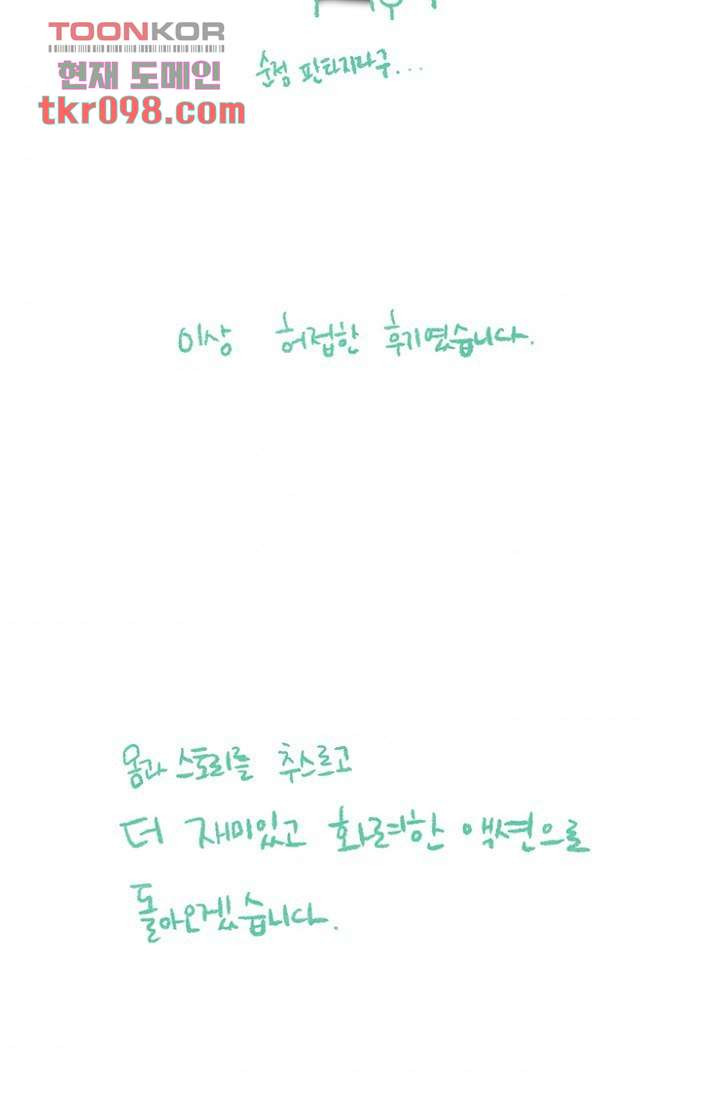 TOONKOR
현재 도메인
tkr098.com
순정 판타지라구...
이상 허접한 후기였습니다.
몸과 스토리를 추스르고
더 재미있고 화려한 액션으로
돌아오겠습니다.